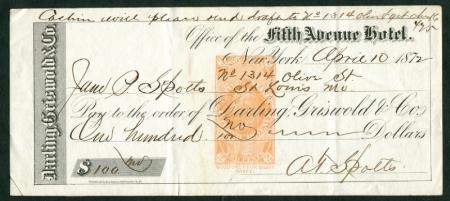 Cashier will please send draft to No 1314 Olive st
Office of the Fifth Avenue Hotel.
New York April 10 1872
No 1314 Olive St
St Louis Mo.
Pay to the order of Darling, Griswold & Co
One hundred no/100 Dollars
$100 no
A. P. Spotts
Darling Griswold & Co.